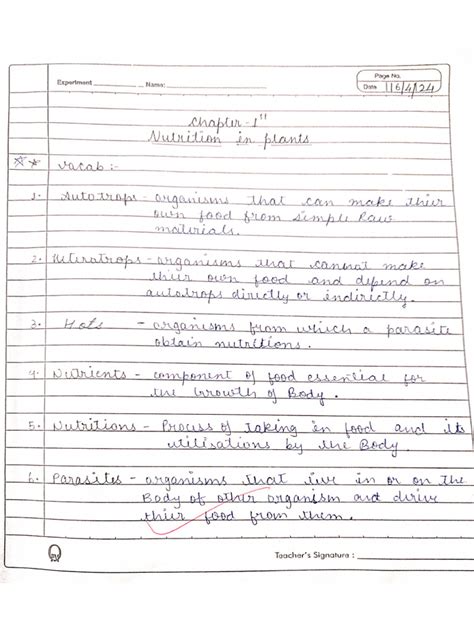 Page No.
Experiment Name:
Date 16/4/24
Chapter-1st
Nutrition in plants
Vocab :-
1. Autotrops - organisms that can make thier
own food from simple Raw
materials.
2. Hiteratrops - organisms that cannot make
thier own food and depend on
autotrops directly or indirectly.
3. Hots - organisms from which a parasite
obtain nutritions.
4. Nutrients - component of food essential for
the Growth of Body.
5. Nutritions - Process of taking in food and its
utilisations by the Body.
6. Parasites - organisms that live in or on the
Body of other organism and dirive
thier food from them.
Teacher's Signature :